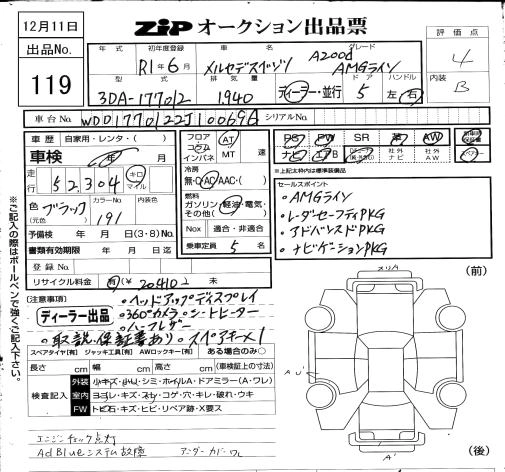 12月11日
ZIP オークション出品票
評価点
4
内装
B
出品No.
119
年式
初年度登録
R1年6月
車名
メルセデスベンツ
グレード
A200d
AMGライン
型式
3DA-177012
排気量
1,940
ディーラー・並行
ドア
5
ハンドル
左・右
車台No.
WDD1770122J10069
シリアルNo.
車歴 自家用・レンタ・( )
車検 年 月
走行 52,304 キロ マイル
色 (元色) ブラック カラーNo. 191 内装色
予備検 年 月 日(3・8)No.
書類有効期限 年 月 日迄
登録No.
リサイクル料金 有(¥ 20410 )
フロア コラム インパネ AT MT 速
冷房 無・C・AC・AAC・( )
燃料 ガソリン・軽油・電気・その他( )
Nox 適合・非適合
乗車定員 5 名
PS PW SR 革 AW
ナビ エアB 社外ナビ 社外AW
※上記太枠内は装備品
セールスポイント
・AMGライン
・レーダーセーフティPKG
・アドバンスドPKG
・ナビゲーションPKG
※ご記入の際はボールペンで強くご記入下さい。
【注意事項】
ディーラー出品
・ヘッドアップディスプレイ
・360°カメラ・シートヒーター
・ハーフレザー
・取説・保証書あり・スペアキー×1
スペアタイヤ【有】 ジャッキ工具【有】 AWロックキー【有】 ある場合のみ○
長さ cm 幅 cm 高さ cm (車検証上の寸法)
検査記入
外装 小キズ・凹ム・シミ・ホイルA・ドアミラー(A・ワレ)
室内 ヨゴレ・キズ・スレ・コゲ・穴・キレ・破れ・ウキ
FW トビ石・キズ・ヒビ・リペア跡・X要ス
エンジンチェック点灯
AdBlueシステム故障 アンダーカバーワレ
(前)
(後)
A